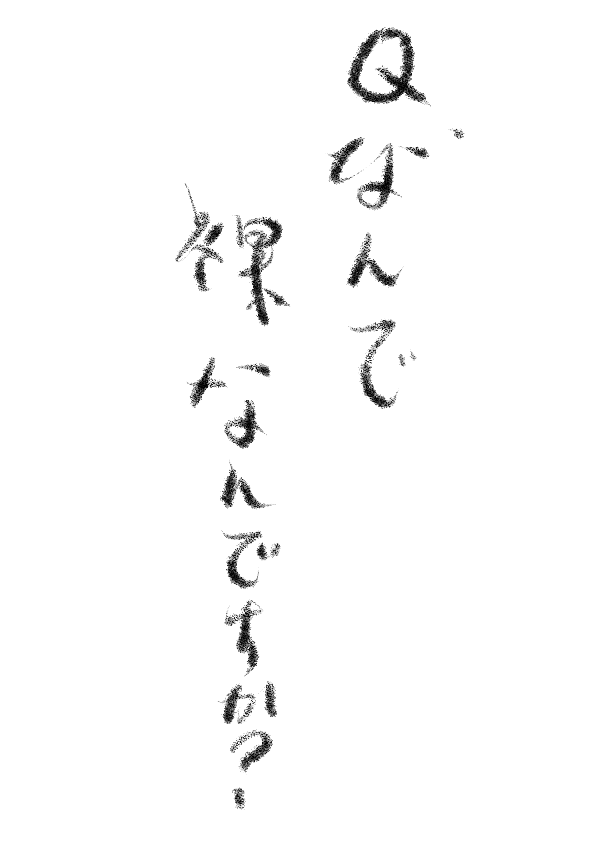 Qなんで
裸なんですか?